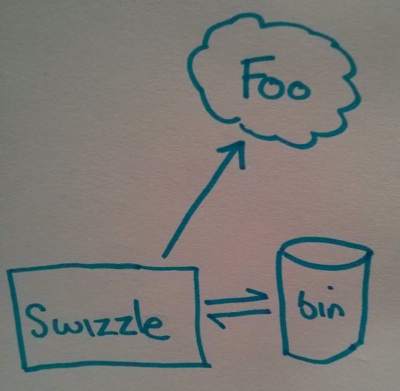 Foo
Swizzle
bin